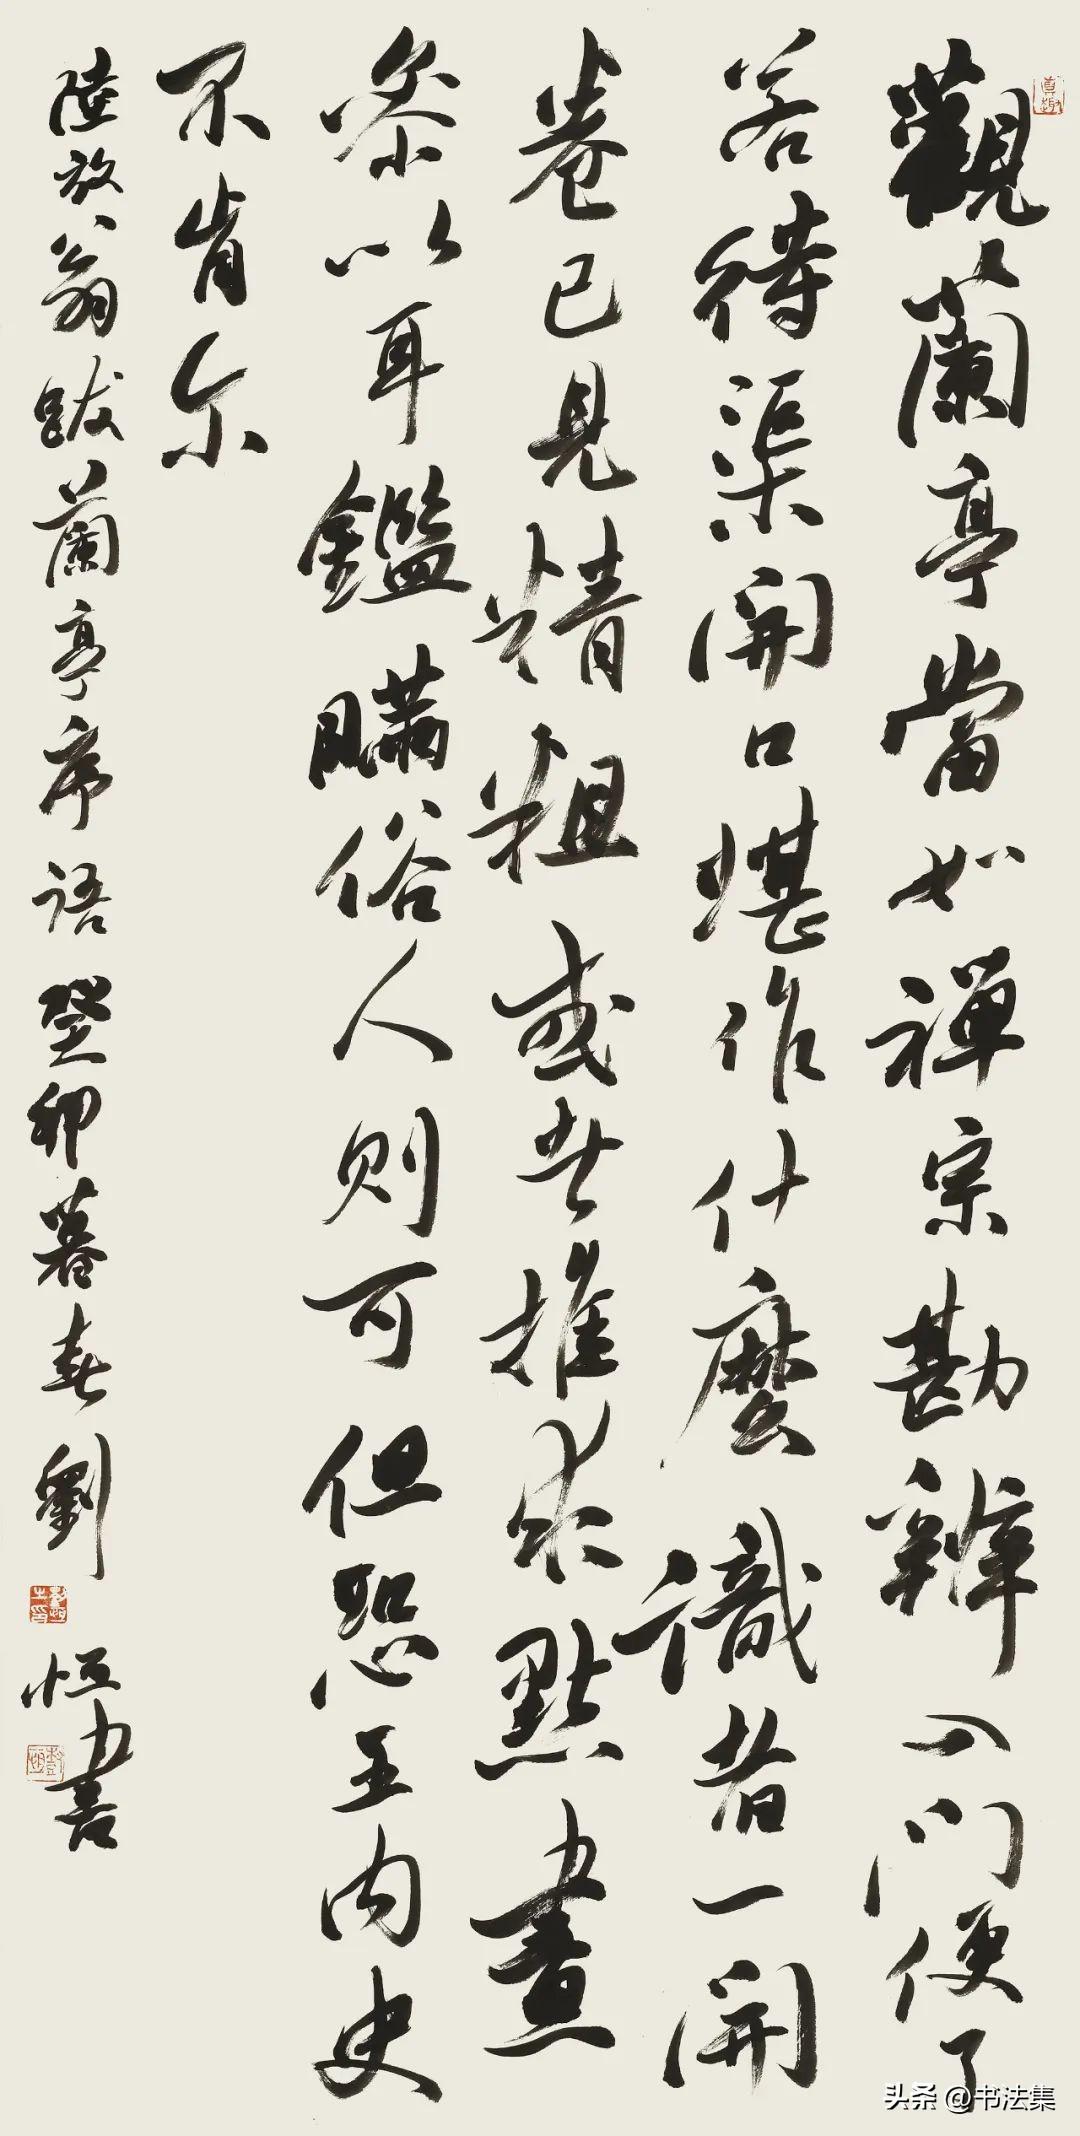 觀蘭亭當如禪宗勘辨入門便了
若待渠開口堪作什麼識者一開
卷已見精粗或者推求點畫
參以耳鑑瞞俗人則可但恐王内史
不肯尔
陸放翁跋蘭亭序語癸卯暮春劉
恒書
真趣
头条 @书法集